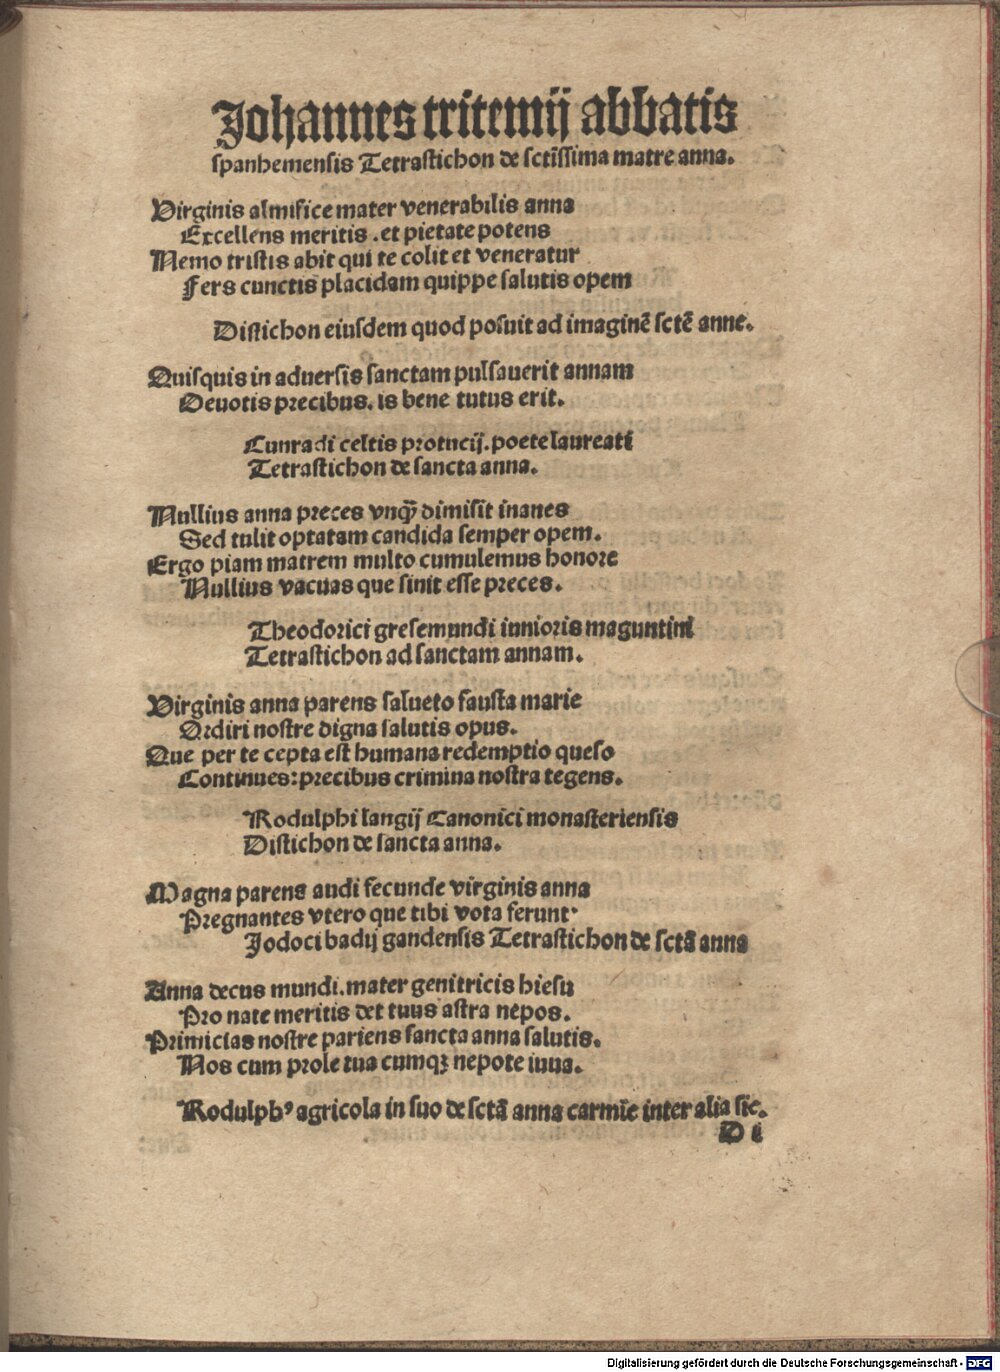 Johannes tritemij abbatis
spanhemensis Tetrastichon de sctissima matre anna.
Virginis almifice mater venerabilis anna
Excellens meritis .et pietate potens
Nemo tristis abit qui te colit et veneratur
Fers cunctis placidam quippe salutis opem
Distichon eiusdem quod posuit ad imaginē sctē anne.
Quisquis in aduersis sanctam pulsauerit annam
Deuotis precibus. is bene tutus erit.
Cunradi celtis protucij. poete laureati
Tetrastichon de sancta anna.
Nullius anna preces vnq̄ dimisit inanes
Sed tulit optatam candida semper opem.
Ergo piam matrem multo cumulemus honore
Nullius vacuas que sinit esse preces.
Theodorici gresemundi iunioris maguntini
Tetrastichon ad sanctam annam.
Virginis anna parens salueto fausta marie
Ordiri nostre digna salutis opus.
Que per te cepta est humana redemptio queso
Continues: precibus crimina nostra tegens.
Rodulphi langij Canonici monasteriensis
Distichon de sancta anna.
Magna parens audi fecunde virginis anna
Pregnantes vtero que tibi vota ferunt·
Jodoci badij gandensis Tetrastichon de sctā anna
Anna decus mundi. mater genitricis hiesu
Pro nate meritis det tuus astra nepos.
Primicias nostre pariens sancta anna salutis.
Nos cum prole tua cumqꝫ nepote iuua.
Rodulphꝰ agricola in suo de sctā anna carmīe inter alia sic.
D i
Digitalisierung gefördert durch die Deutsche Forschungsgemeinschaft - DFG